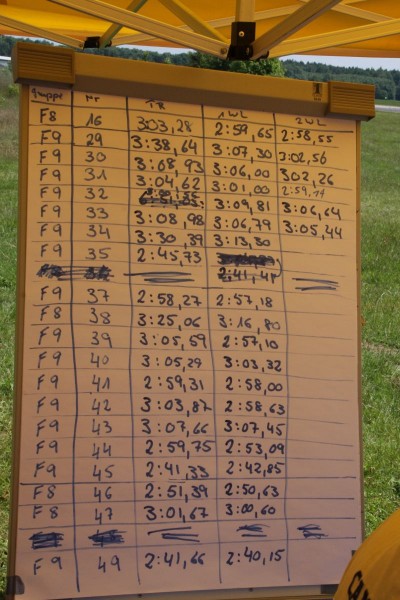 Gruppe Nr TR 1WL 2WL
F8 16 303,28 2:59,65 2:58,55
F9 29 3:38,64 3:07,30 3:02,56
F9 30 3:08,93 3:06,00 302,26
F9 31 3:04,62 3:01,00
F9 32 3:09,81 3:06,64
F9 33 3:08,98 3:06,79 3:05,44
F9 34 3:30,39 3:13,30
F9 35 2:45,73 2:41,41
F9 37 2:58,27 2:57,18
F8 38 3:25,06 3:16,80
F9 39 3:05,59 2:57,10
F9 40 3:05,29 3:03,32
F9 41 2:59,31 2:58,00
F9 42 3:03,87 2:58,63
F9 43 3:07,66 3:07,45
F9 44 2:59,75 2:53,09
F9 45 2:41,33 2:42,85
F8 46 2:51,39 2:50,63
F8 47 3:01,67 3:00,60
F9 49 2:41,66 2:40,15